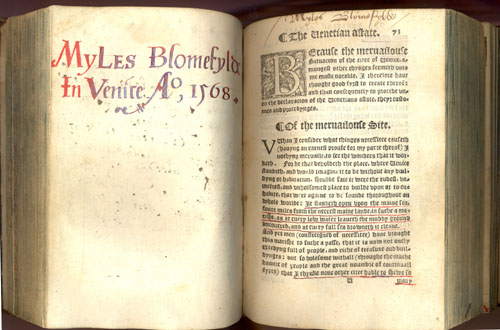 Myles Blomefylde
In Venice. Ao, 1568.
Myles Blomefylde
¶ The Venetian astate. 73
Because the meruailouse
situacion of the citee of Venice, a-
mongest other thynges seemeth vnto
me moste notable. I therefore haue
thought good fyrst to entreate therof:
and than consequently to procede vn-
to the declaracion of the Venetians astate, theyr custo-
mes and procedynges.
¶ Of the meruailouse Site.
Whan I consider what thinges necessitee causeth
(hauyng an earnest proufe for my parte therof) I
nothyng meruaile, to see the wonders that it wor-
keth. For he that beholdeth the place, where Venice
standeth, and would imagine it to be without any buil-
dyng or habitacion, shoulde saie it were the rudest, vn-
meetest, and vnholsomest place to builde vpon or to en-
habite, that were agayne to be founde throughout an
whole worlde: It standeth open vpon the maine sea,
foure miles from the neerest maine lande in suche a ma-
risshe, as at euery low water leaueth the muddy ground
vncouered, and at euery full sea drowneth it cleane.
And yet men (constreigned of necessitee) haue brought
this marisse to suche a passe, that it is now not onely
excedyng full of people, and riche of treasure and buil-
dynges: but so holesome withall (through the muche
haunte of people and the great noumbre of continuall
fyres) that I thynke none other citee hable to shewe so
many